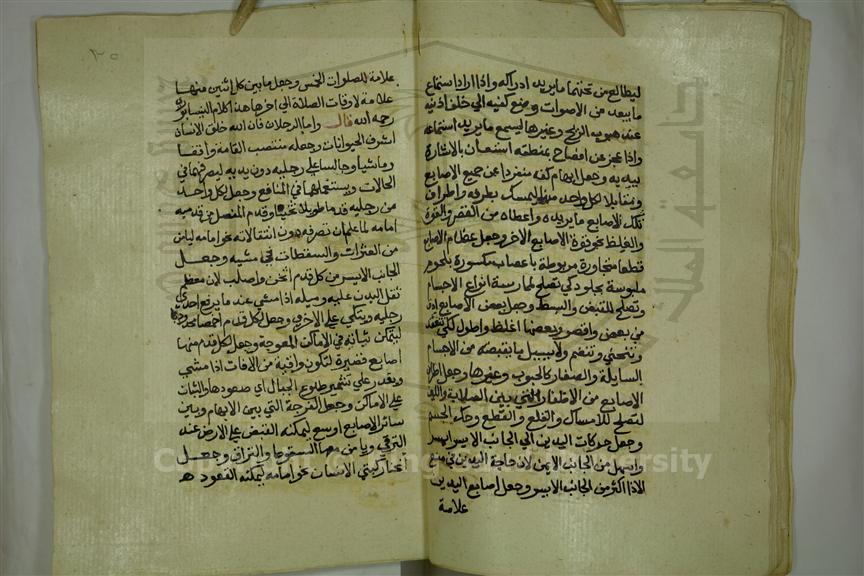 ليطالع من تحتها ما يريد ادراكه واذا اراد استماع
ما يبعد من الاصوات وضع كفيه الى خلف اذنيه
عند هبوب الريح وغيرها ليسمع ما يريد استماعه
واذا عجز عن افصاح بمنطقه استعان بالاشارة
بيديه وجعل ابهام كفه منفردا عن جميع الاصابع
ومقابلا لكل واحد منها ليمسك بطرفه واطراف
تلك الاصابع ما يريده واعطاه من القصر والقوة
والغلظ نحو قوة الاصابع الاخر وجعل عظام الاصابع
قطعا متجاورة مربوطة باعصاب مكسورة بلحوم
ملبوسة بجلود كي تصلح لممارسة انواع الاجسام
وتصلح للقبض والبسط وجعل بعض الاصابع ادق
من بعض واقصر وبعضها اغلظ واطول لكي تنعقد
وتنحني وتنضم ولا يسيل ما يقبضه من الاجسام
السايلة والصغار كالحبوب وغيرها وجعل اطراف
الاصابع من الاظفار التي بين الصلابة واللين
لتصلح للامساك والقلع والقطع وحك الجسم
وجعل حركات اليدين الى الجانب الايسر ايسر
واسهل من الجانب الايمن لان حاجة اليدين في
الاذا اكثر من الجانب الايسر وجعل اصابع اليدين
علامة
٢٥
علامة للصلوات الخمس وجعل ما بين كل اثنين منها
علامة لاوقات الصلاة الى اخرها هذا كلام النيسابوري
رحمه الله قال واما الرجلان فان الله خلق الانسان
اشرف الحيوانات وجعله منتصب القامة واقفا
وماشيا وجالسا على رجليه دون يديه ليصرفهما في
الحالات ويستعملهما في المنافع وجعل لكل واحد
من رجليه قدما طويلا وقدم المفصل من قدميه
امامه لما علم ان تصرفه دون انتقالاته نحو امامه ليامن
من العثرات والسقطات في مشيه وجعل
الجانب الايسر من كل قدم اثخن واصلب لان معظم
ثقل البدن عليه وميله اذا مشي عند ما يرفع احدى
رجليه ويتكي على الاخرى وجعل لكل قدم اخمصا
ليتمكن ثباته في الاماكن المعوجة وجعل لكل قدم منها
اصابع قصيرة لتكون واقية من الافات اذا مشي
ويقدر على تشمير طلوع الجبال اي صعودها والثبات
على الاماكن وجعل الفرجة التي بين الابهام وبين
سائر الاصابع اوسع ليمكنه القبض على الارض عند
الترقي ويامن معها السقوط والنزاق وجعل
ركبتي الانسان نحو امامه ليمكنه القعود
Copyright © King Saud University
جامعة الملك